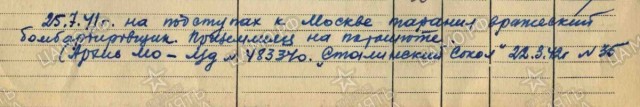 25.7.41г. на подступах к Москве таранил вражеский
бомбардировщик. Приземлился на парашюте.
(Архив МО – Изд. № 483340. „Сталинский Сокол" 22.3.42г № 35